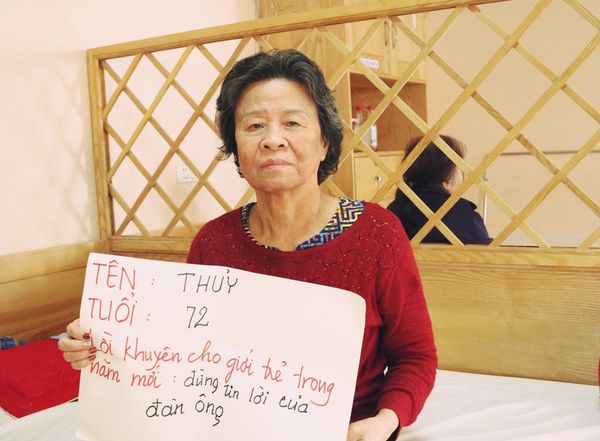 TÊN : THỦY
TUỔI : 72
Lời khuyên cho giới trẻ trong
năm mới : đừng tin lời của
đàn ông